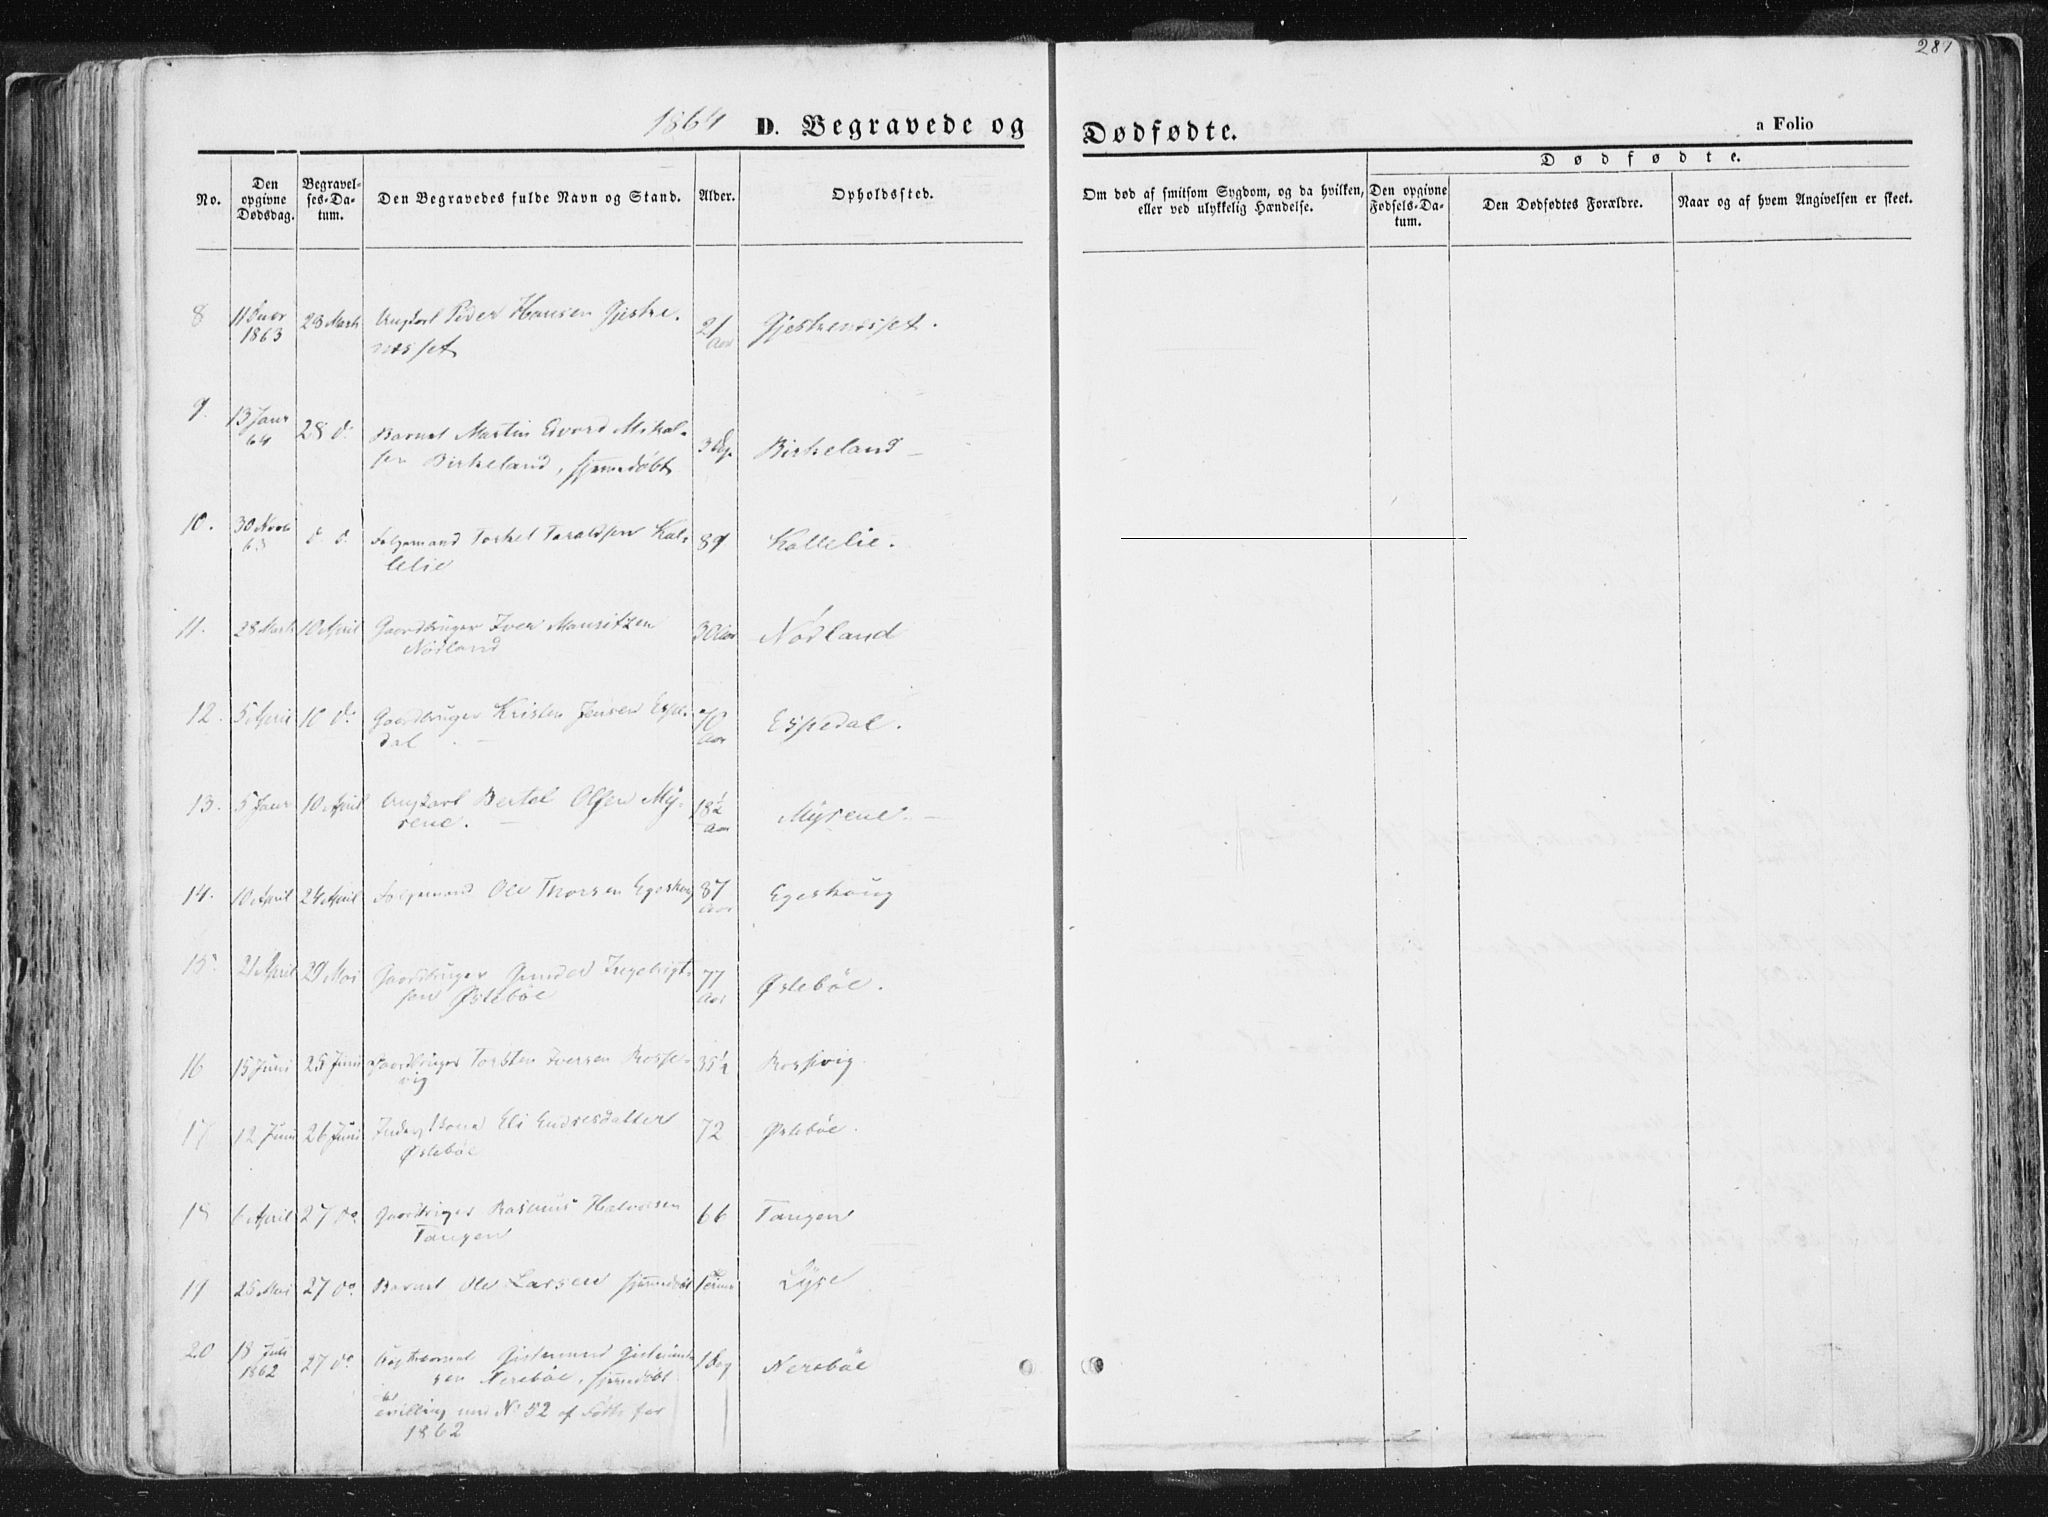 281
1864 D. Begravede og Dødfødte. a Folio
Dødfødte.
No. Den opgivne Dødsdag. Begravelses-Datum. Den Begravedes fulde Navn og Stand. Alder. Opholdssted. Om død af smitsom Sygdom, og da hvilken, eller ved ulykkelig Hændelse. Den opgivne Fødsels-Datum. Den Dødfødtes Forældre. Naar og af hvem Angivelsen er skeet.
8 11 1863 28 Marts Ungkarl Peder Hansen Gjestre- 21 Aar Gjestrenesset.
nesset
9. 13 Janr 64 28 do Barnet Martin Edvard Mikal- 3 Dg. Birkeland
sen Birkeland, hjemmedøbt
10. 30 Novb 63 d. d. Folgemand Torkel Taraldsen Kal- 89 Kallelie.
lelie
11. 28 Marts 10 April Gaardbruger Iver Mauritzen 30 Aar Nødland
Nødland
12. 5 April 10 do Gaardbruger Kristen Jensen Espe- 70 Aar Espedal.
dal
13. 5 Janr 10 April Ungkarl Bertel Olsen My- 18½ Aar Myrene.
rene.
14. 10 April 24 April Folgemand Ole Thorsen Egeskoug 87 Aar Egeskoug
15. 21 April 29 Mai Gaardbruger Gunder Ingebrigt- 77 Aar Østebøe.
sen Østebøe
16 15 Juni 25 Juni Gaardbruger Torsten Iversen Rosse- 35½ Rossevig
vig
17 12 Juni 26 Juni Eli Endresdatter 72 Østebøe.
Østebøe
18 6 April 27 do Gaardbruger Rasmus Halvorsen 66 Tangen
Tangen
19 25 Mai 27 do Barnet Ole Larsen hjemmedøbt Lyse
20 18 Juli 1862 27 do Gistmund 1 Dag Nerebøe
sen Nerebøe, hjemmedøbt
tvilling med No 52 af Fødte for
1862